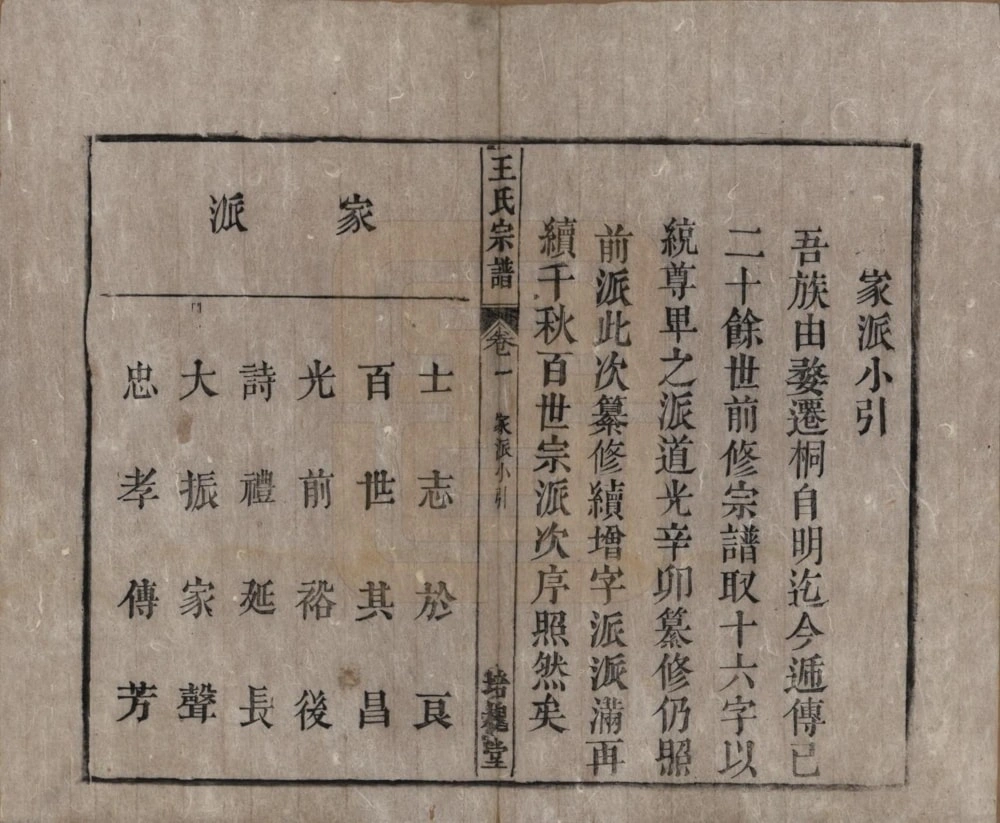 家派小引
吾族由婺遷桐自明迄今遞傳已
二十餘世前修宗譜取十六字以
統尊卑之派道光辛卯纂修仍照
前派此次纂修續增字派派滿再
續千秋百世宗派次序照然矣
王氏宗譜 卷一 家派小引 培槐堂
家派
士志於良
百世其昌
光前裕後
詩禮延長
大振家聲
忠孝傳芳